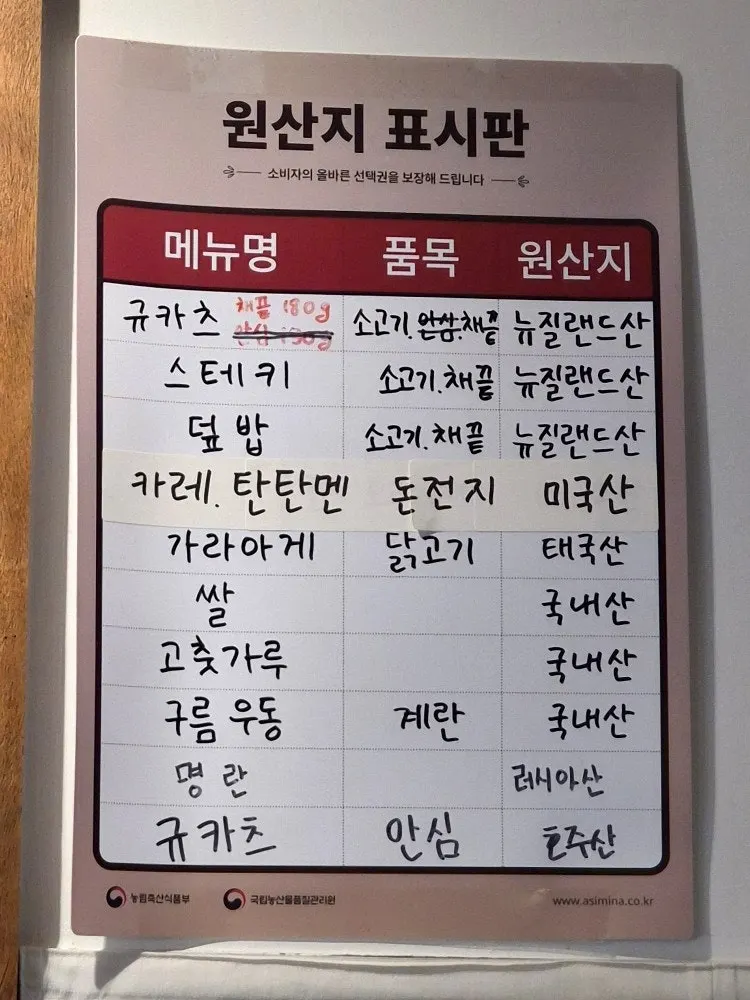 원산지 표시판
소비자의 올바른 선택권을 보장해 드립니다
메뉴명 품목 원산지
규카츠 채끝 180g 소고기.안심.채끝 뉴질랜드산
안심 130g
스테키 소고기.채끝 뉴질랜드산
덮밥 소고기.채끝 뉴질랜드산
카레.탄탄멘 돈전지 미국산
가라아게 닭고기 태국산
쌀 국내산
고춧가루 국내산
구름 우동 계란 국내산
명란 러시아산
규카츠 안심 호주산
농림축산식품부 국립농산물품질관리원 www.asimina.co.kr